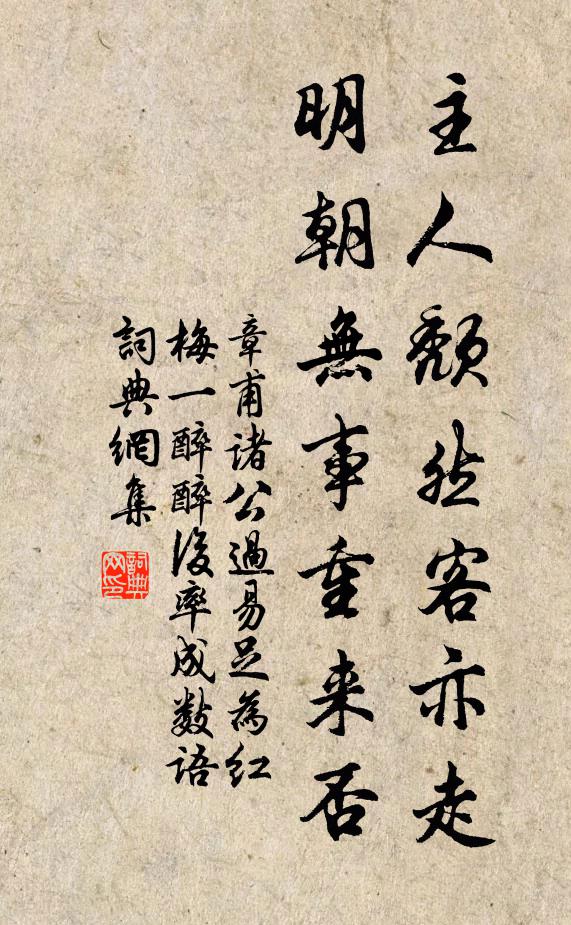 主人頹然客亦走
明朝無事重来否
章甫诸公過易足為红
梅一醉醉後率成數语
詞典網集
詞典
网印